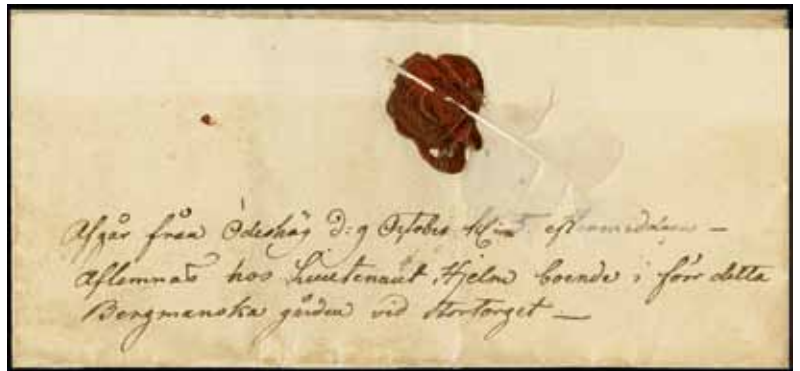 Afgår från Ödeshög d: 9 October Kl: eftermidagen —
Aflemnas hos Lieutenant Hjelm boende i förr detta
Bergmanska gården vid Stortorget —